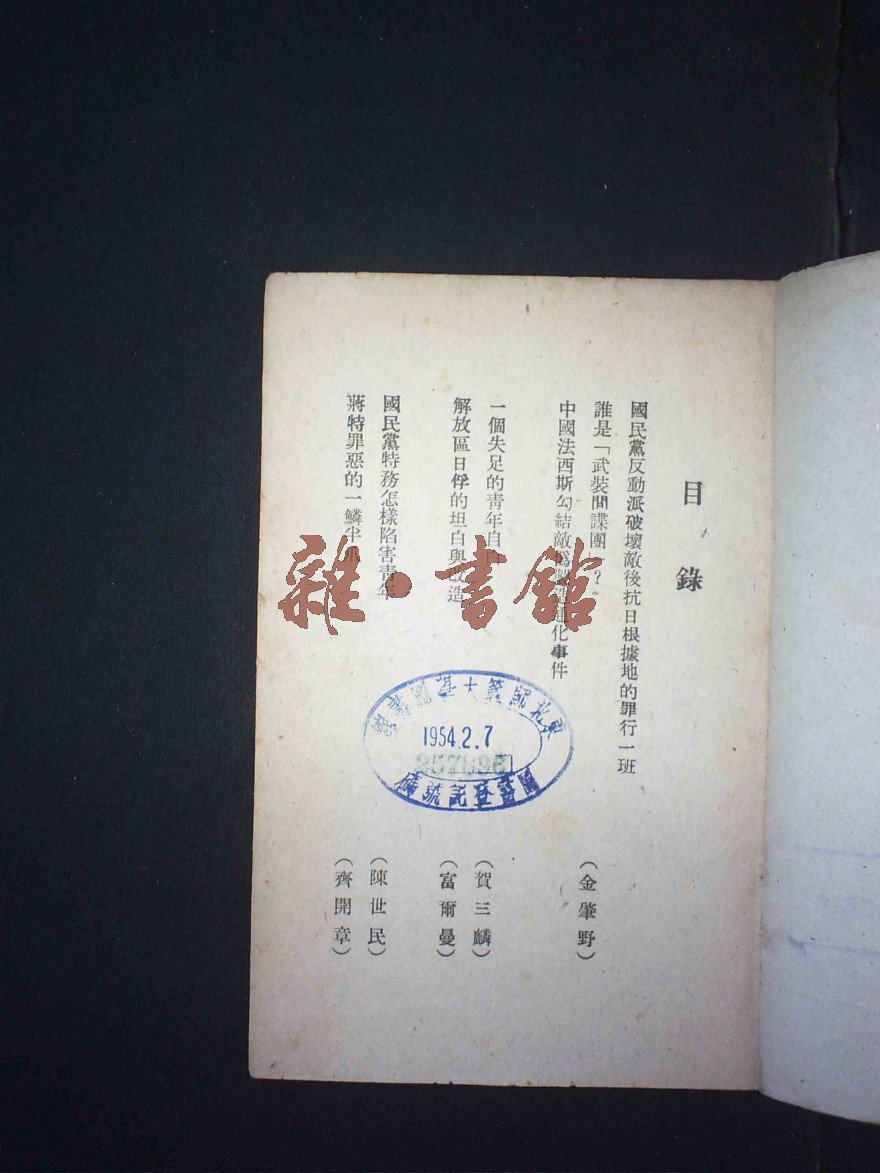 目錄
國民黨反動派破壞敵後抗日根據地的罪行一班
誰是「武裝間諜團」？（金肇野）
中國法西斯勾結敵僞製造通化事件
一個失足的青年自白（賀三麟）
解放區日俘的坦白與改造（富爾曼）
國民黨特務怎樣陷害青年（陳世民）
蔣特罪惡的一鱗半爪（齊開章）
雜·書館
東北師範大學圖書館
1954.2.7
圖書登記號碼